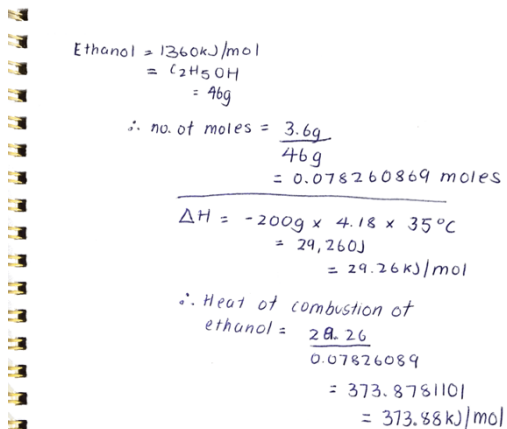 Ethanol = 1360kJ/mol
= C2H5OH
= 46g
∴ no. of moles = 3.6g
46g
= 0.078260869 moles
ΔH = -200g x 4.18 x 35°C
= 29,260J
= 29.26kJ/mol
∴ Heat of combustion of
ethanol = 29.26
0.07826089
= 373.8781101
= 373.88kJ/mol